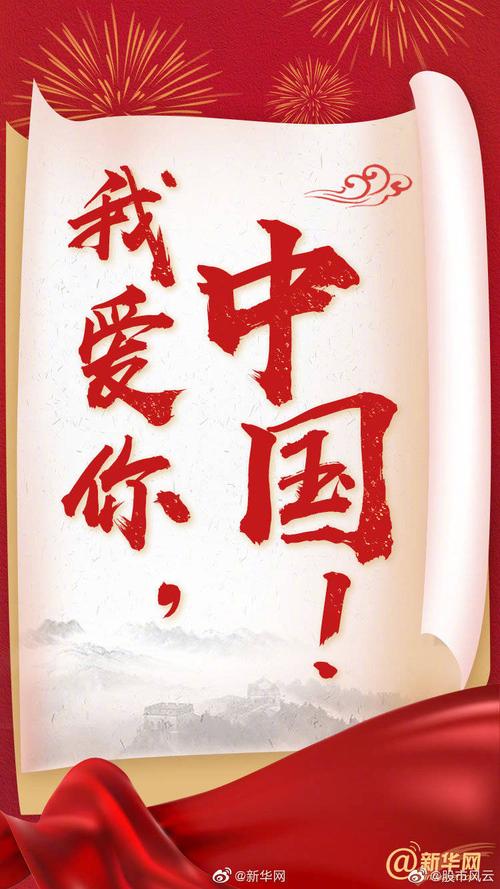 我爱你，
中国！
@新华网
@新华网
@股市风云